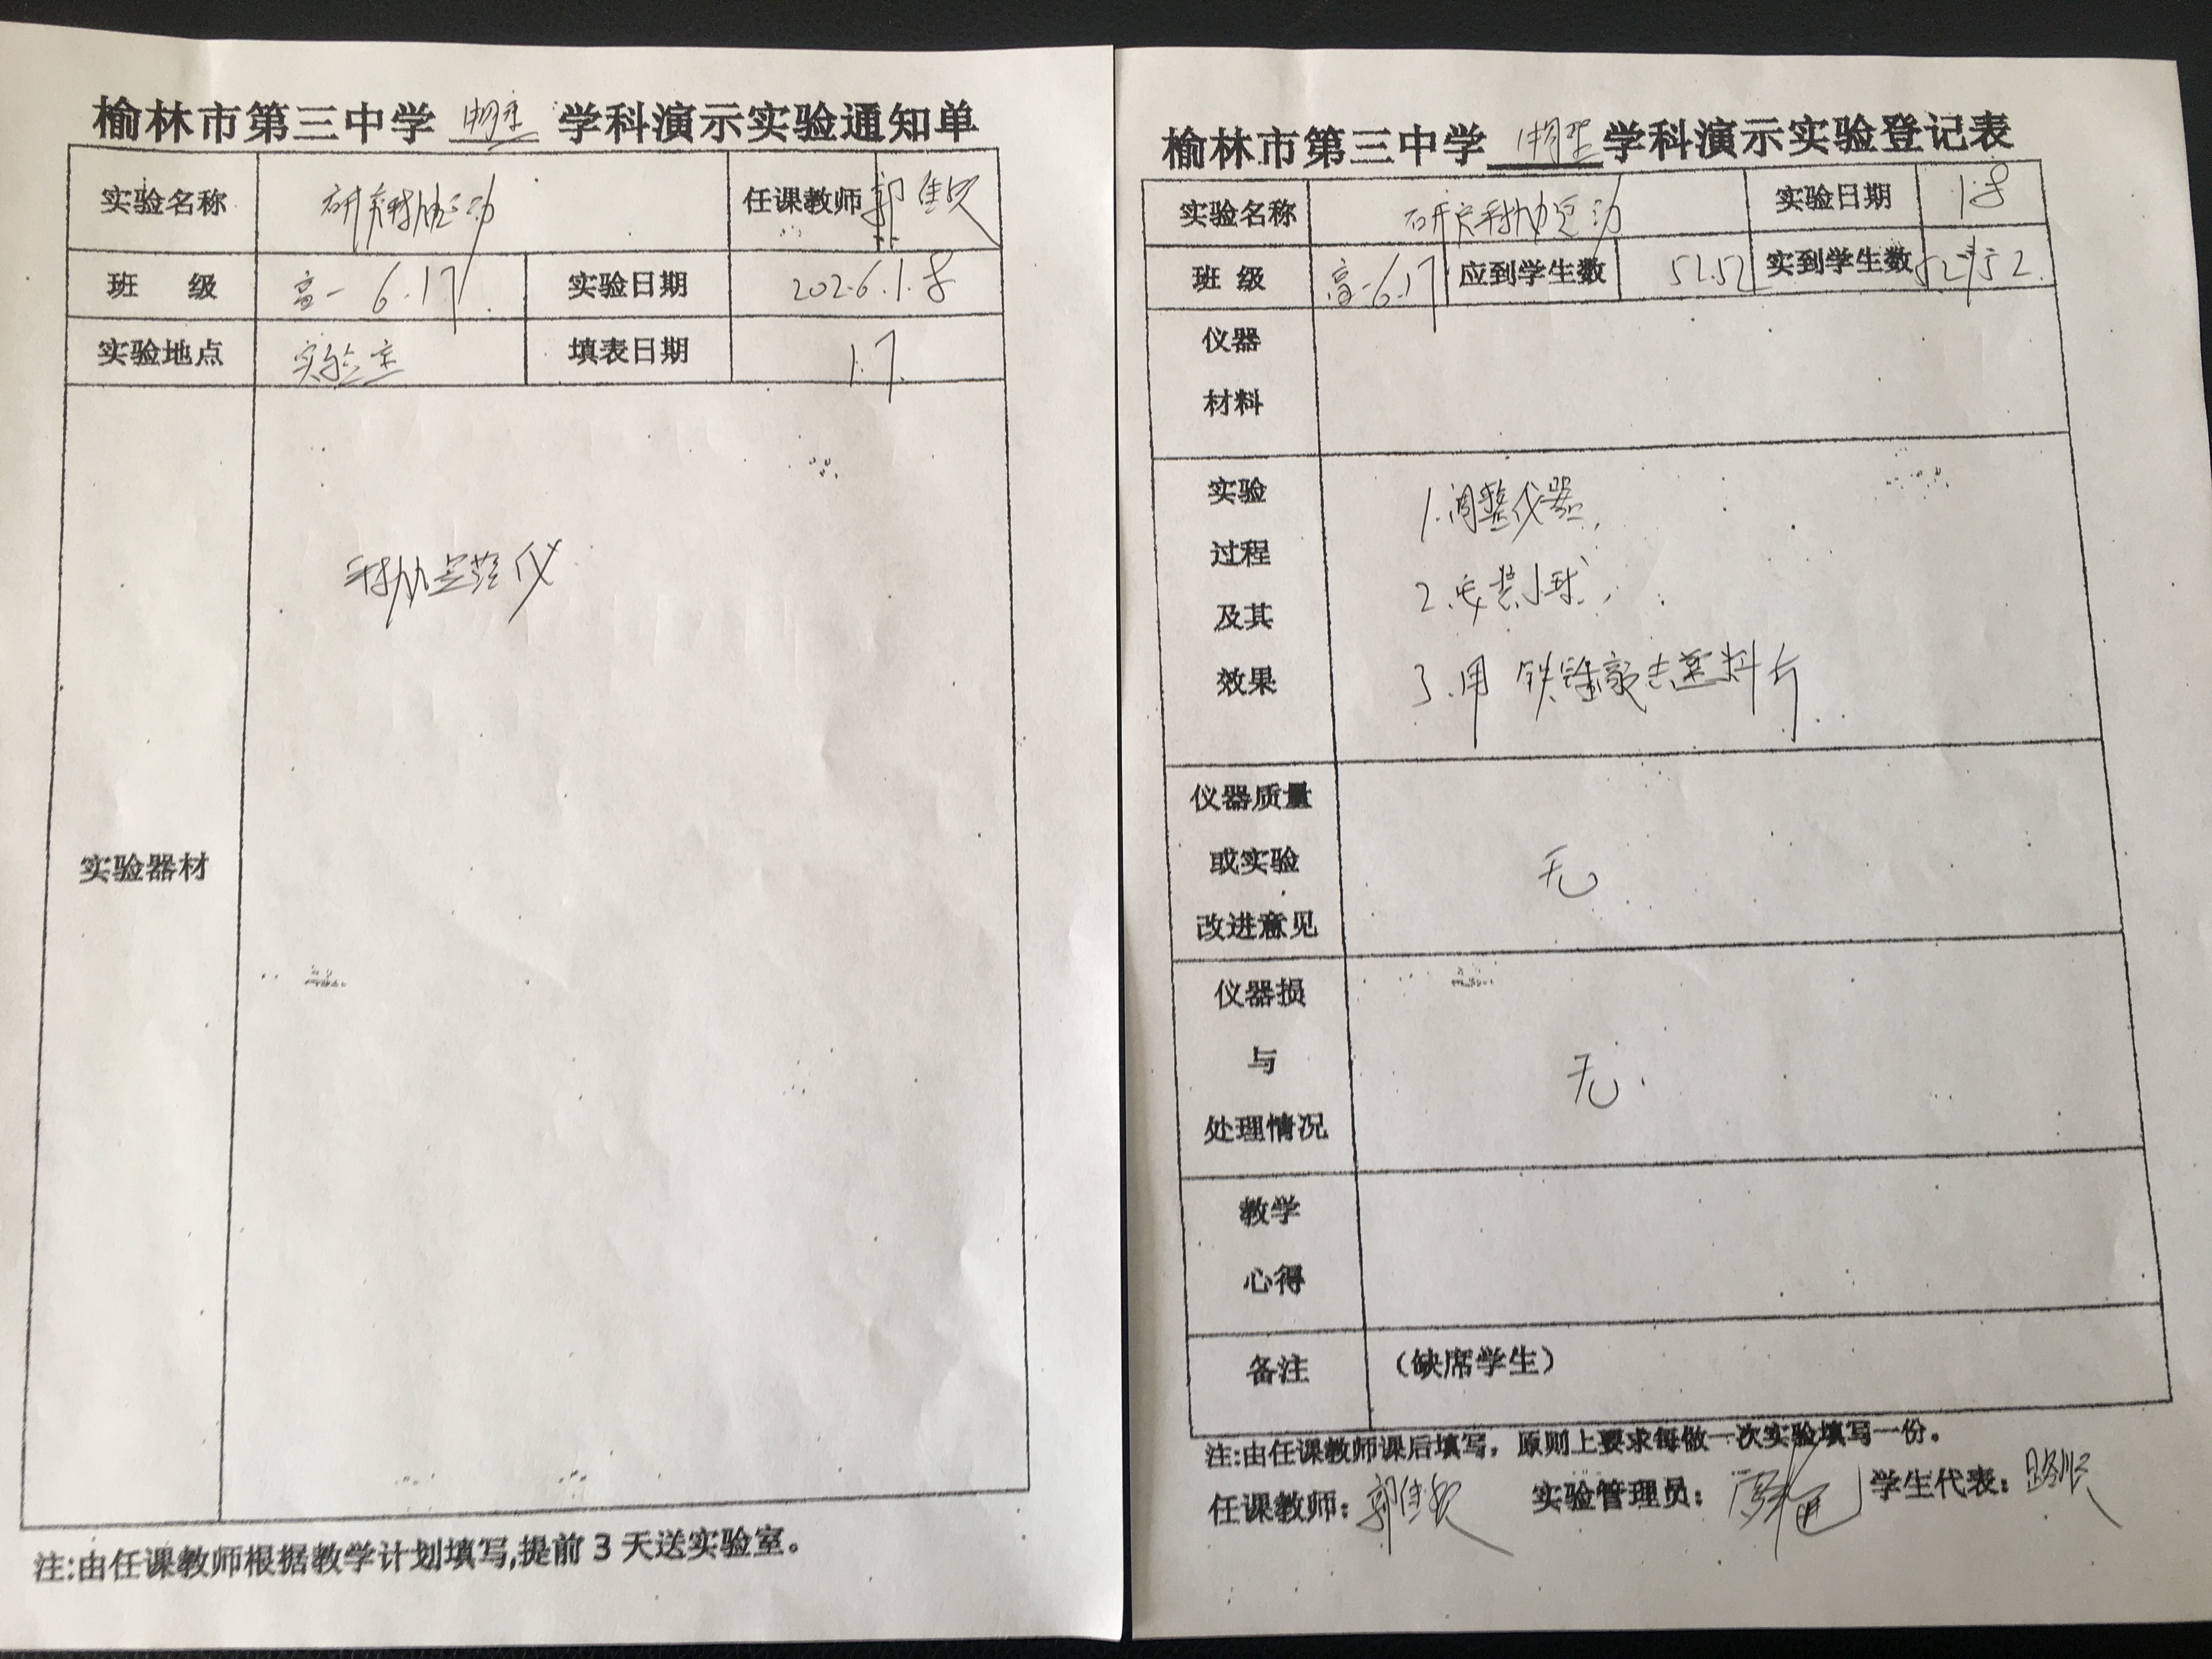 榆林市第三中学 物理 学科演示实验通知单
实验名称 研究抛体运动 任课教师 郭佳欢
班 级 高一 6.17 实验日期 2026.1.8
实验地点 实验室 填表日期 1.7.
实验器材
抛体实验仪
注:由任课教师根据教学计划填写,提前 3 天送实验室。
榆林市第三中学 物理 学科演示实验登记表
实验名称 研究抛体运动 实验日期 1.8
班 级 高一6.17 应到学生数 52.52 实到学生数 52.52.
仪器
材料
实验
过程
及其
效果
1.调整仪器,
2.安装小球,
3.用铁锤敲击塑料片.
仪器质量
或实验
改进意见
无
仪器损
与
处理情况
无.
教学
心得
备注 (缺席学生)
注:由任课教师课后填写,原则上要求每做一次实验填写一份。
任课教师: 郭佳欢 实验管理员: 学生代表: